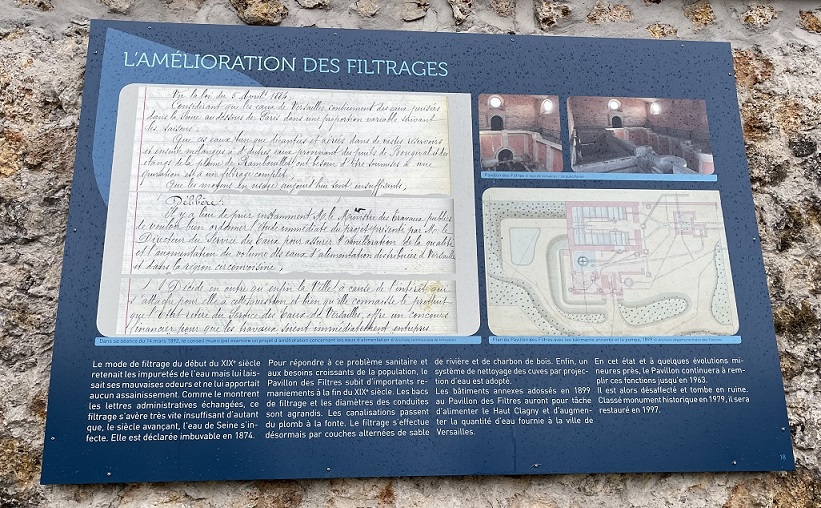 L'AMÉLIORATION DES FILTRAGES
Vu la loi du 5 Avril 1884
Considérant que les eaux de Versailles contiennent des eaux puisées
dans la Seine au dessous de Paris dans une proportion variable suivant
les saisons.
Que ces eaux bien que décantées et aérées dans de vastes réservoirs
et ensuite mélangées à d'autres eaux provenant du puits de Bougival et des
étangs de la plaine de Rambouillet ont besoin d'être soumises à une
épuration et à un filtrage complet.
Que les moyens en usage aujourd'hui sont insuffisants,
Délibère:
Il y a lieu de prier instamment Mr. le Ministre des travaux publics
de vouloir bien ordonner l'étude immédiate du projet présenté par Mr. le
Directeur du Service des Eaux pour assurer l'amélioration de la qualité
et l'augmentation du volume des eaux d'alimentation distribuées à Versailles
et dans la région circonvoisine;
Décide en outre qu'enfin la Ville à cause de l'intérêt que
s'attache pour elle à cette question et bien qu'elle connaisse le profit
que l'Etat retire du Service des Eaux de Versailles, offre un concours
financier pour que les travaux soient immédiatement entrepris.
Dans sa séance du 14 mars 1892, le conseil municipal examine un projet d'amélioration concernant les eaux d'alimentation
Pavillon des Filtres
Plan du Pavillon des Filtres avec les bâtiments annexes et la pompe, 1899
Le mode de filtrage du début du XIXᵉ siècle
retenait les impuretés de l'eau mais lui lais-
sait ses mauvaises odeurs et ne lui apportait
aucun assainissement. Comme le montrent
les lettres administratives échangées, ce
filtrage s'avère très vite insuffisant d'autant
que, le siècle avançant, l'eau de Seine s'in-
fecte. Elle est déclarée imbuvable en 1874.
Pour répondre à ce problème sanitaire et
aux besoins croissants de la population, le
Pavillon des Filtres subit d'importants re-
maniements à la fin du XIXᵉ siècle. Les bacs
de filtrage et les diamètres des conduites
sont agrandis. Les canalisations passent
du plomb à la fonte. Le filtrage s'effectue
désormais par couches alternées de sable
de rivière et de charbon de bois. Enfin, un
système de nettoyage des cuves par projec-
tion d'eau est adopté.
Les bâtiments annexes adossés en 1899
au Pavillon des Filtres auront pour tâche
d'alimenter le Haut Clagny et d'augmen-
ter la quantité d'eau fournie à la ville de
Versailles.
En cet état et à quelques évolutions mi-
neures près, le Pavillon continuera à rem-
plir ces fonctions jusqu'en 1963.
Il est alors désaffecté et tombe en ruine.
Classé monument historique en 1979, il sera
restauré en 1997.
18